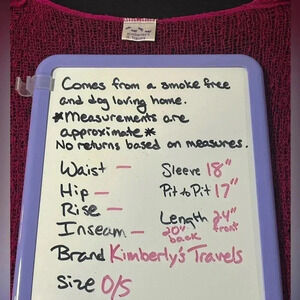 Comes from a smoke free
and dog loving home.
*Measurements are
approximate*
No returns based on measures.
Waist —
Hip —
Rise —
Inseam —
Sleeve 18"
Pit to Pit 17"
Length 24" front
20" back
Brand Kimberly's Travels
Size O/S